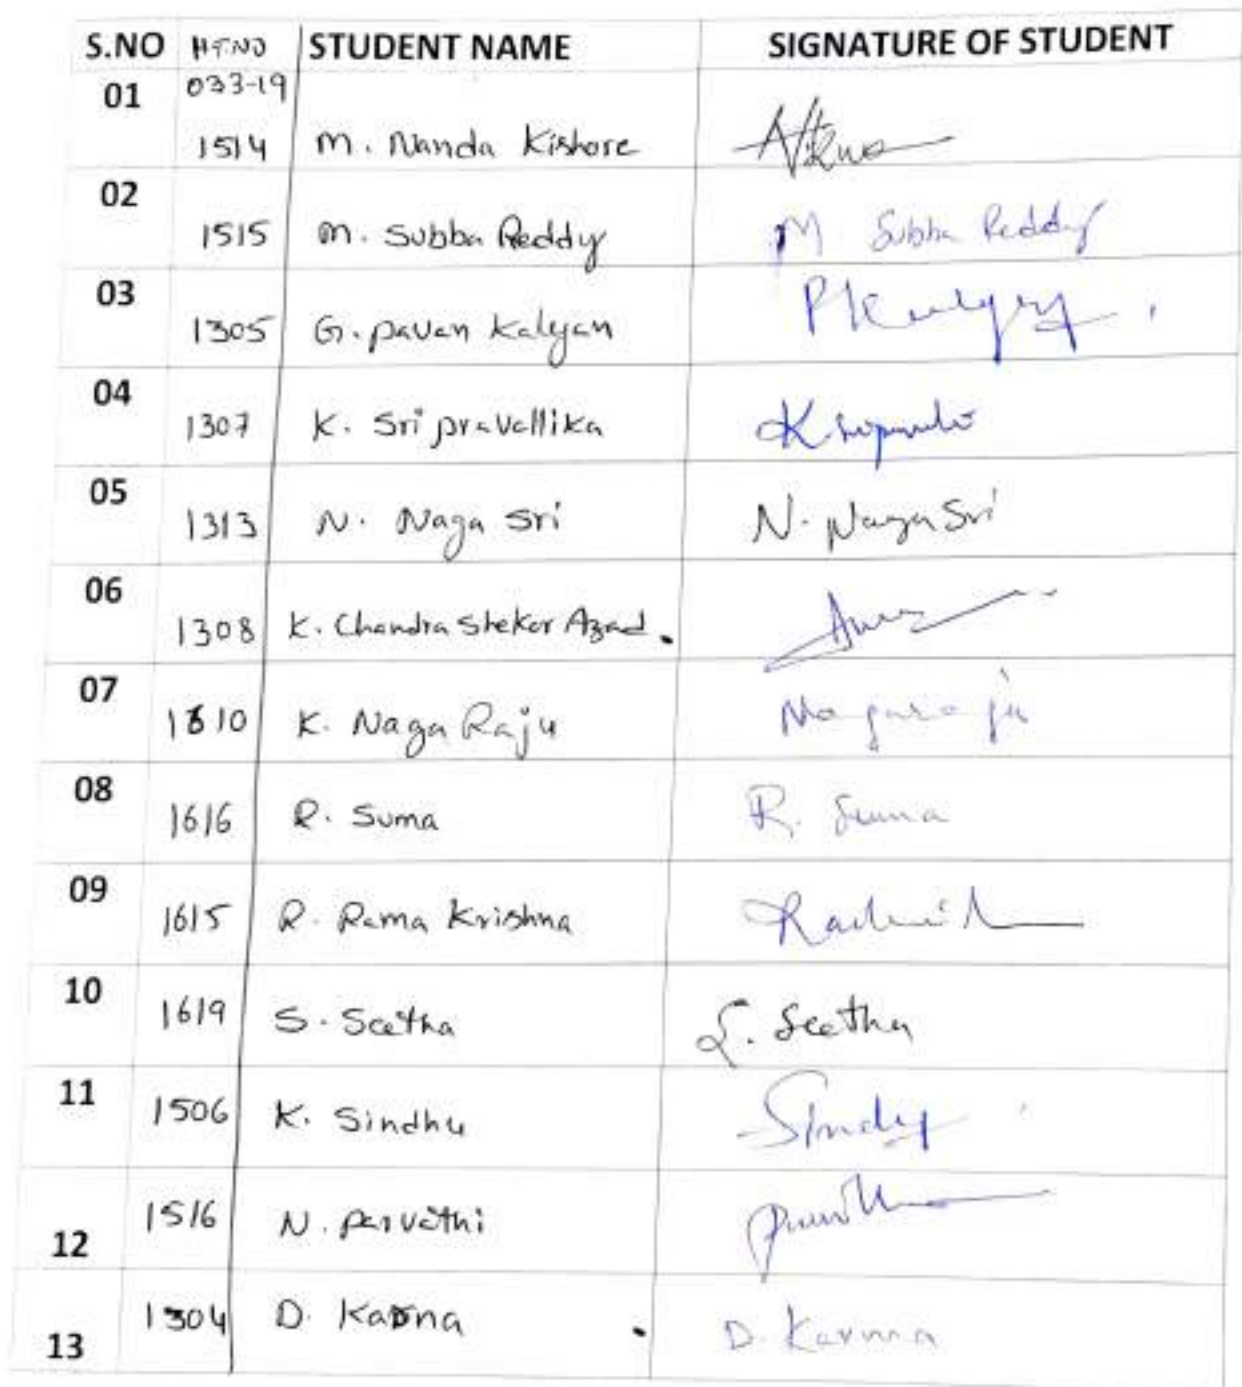 S.NO HT.NO STUDENT NAME SIGNATURE OF STUDENT
01 033-19
1514 M. Nanda Kishore
02
1515 M. Subba Reddy M Subba Reddy
03
1305 G. pavan Kalyan
04
1307 K. Sri pravallika
05
1313 N. Naga Sri N. Naga Sri
06
1308 K. Chandra Shekar Azad.
07
1310 K. Naga Raju Nagaraju
08
1616 R. Suma R. Suma
09
1615 R. Rama Krishna
10
1619 S. Seetha S. Seetha
11
1506 K. Sindhu
1516 N. parvathi
12
1304 D. Karna D. Karuna
13